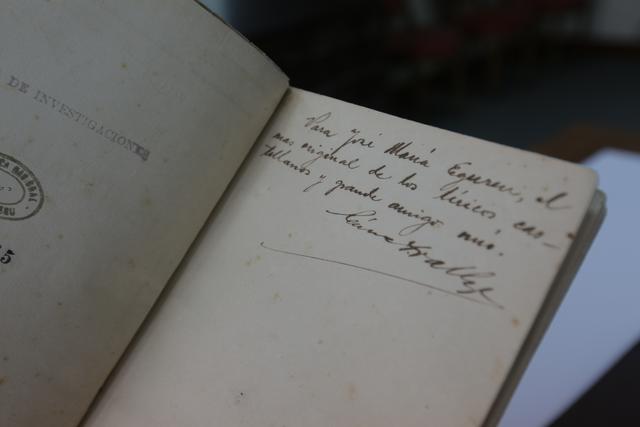 DE INVESTIGACION
NACIONAL
PERU
5
Para José María Eguren, el
mas original de los líricos cas-
tellanos y grande amigo mío.
César Vallejo